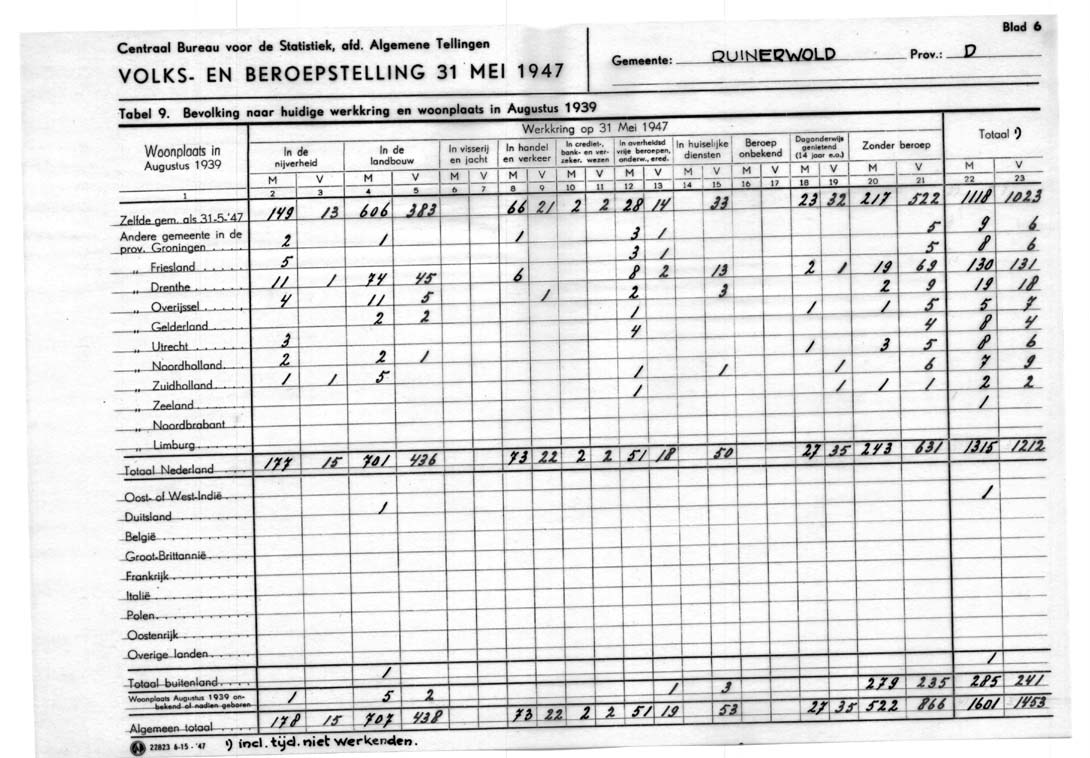 Blad 6
Centraal Bureau voor de Statistiek, afd. Algemene Tellingen
VOLKS- EN BEROEPSTELLING 31 MEI 1947
Gemeente: RUINERWOLD Prov.: D
Tabel 9. Bevolking naar huidige werkkring en woonplaats in Augustus 1939
Woonplaats in Augustus 1939
Werkkring op 31 Mei 1947
In de nijverheid | In de landbouw | In visserij en jacht | In handel en verkeer | In crediet-, bank- en verzeker. wezen | In overheidsd vrije beroepen, onderw., ered. | In huiselijke diensten | Beroep onbekend | Dagonderwijs genietend (14 jaar e.o.) | Zonder beroep | Totaal ¹)
M V M V M V M V M V M V M V M V M V M V M V
1 2 3 4 5 6 7 8 9 10 11 12 13 14 15 16 17 18 19 20 21 22 23
Zelfde gem. als 31-5-'47 149 13 606 383 66 21 2 2 28 14 33 23 32 217 522 1118 1023
Andere gemeente in de
prov. Groningen 2 1 1 3 1 5 9 6
„ Friesland 5 3 1 5 8 6
„ Drenthe 11 1 74 45 6 8 2 13 2 1 19 69 130 131
„ Overijssel 4 11 5 1 2 3 2 9 19 18
„ Gelderland 2 2 1 1 1 5 5 7
„ Utrecht 3 4 4 8 4
„ Noordholland 2 2 1 1 3 5 8 6
„ Zuidholland 1 1 5 1 1 1 6 7 9
„ Zeeland 1 1 1 1 2 2
„ Noordbrabant 1
„ Limburg
Totaal Nederland 177 15 701 436 73 22 2 2 51 18 50 27 35 243 631 1315 1212
Oost- of West-Indië
Duitsland 1 1
België
Groot-Brittannië
Frankrijk
Italië
Polen
Oostenrijk
Overige landen
Totaal buitenland 1 1
Woonplaats Augustus 1939 onbekend of nadien geboren 1 5 2 1 3 279 235 285 241
Algemeen totaal 178 15 707 438 73 22 2 2 51 19 53 27 35 522 866 1601 1453
22823 6-15-'47 ¹) incl. tijd. niet werkenden.